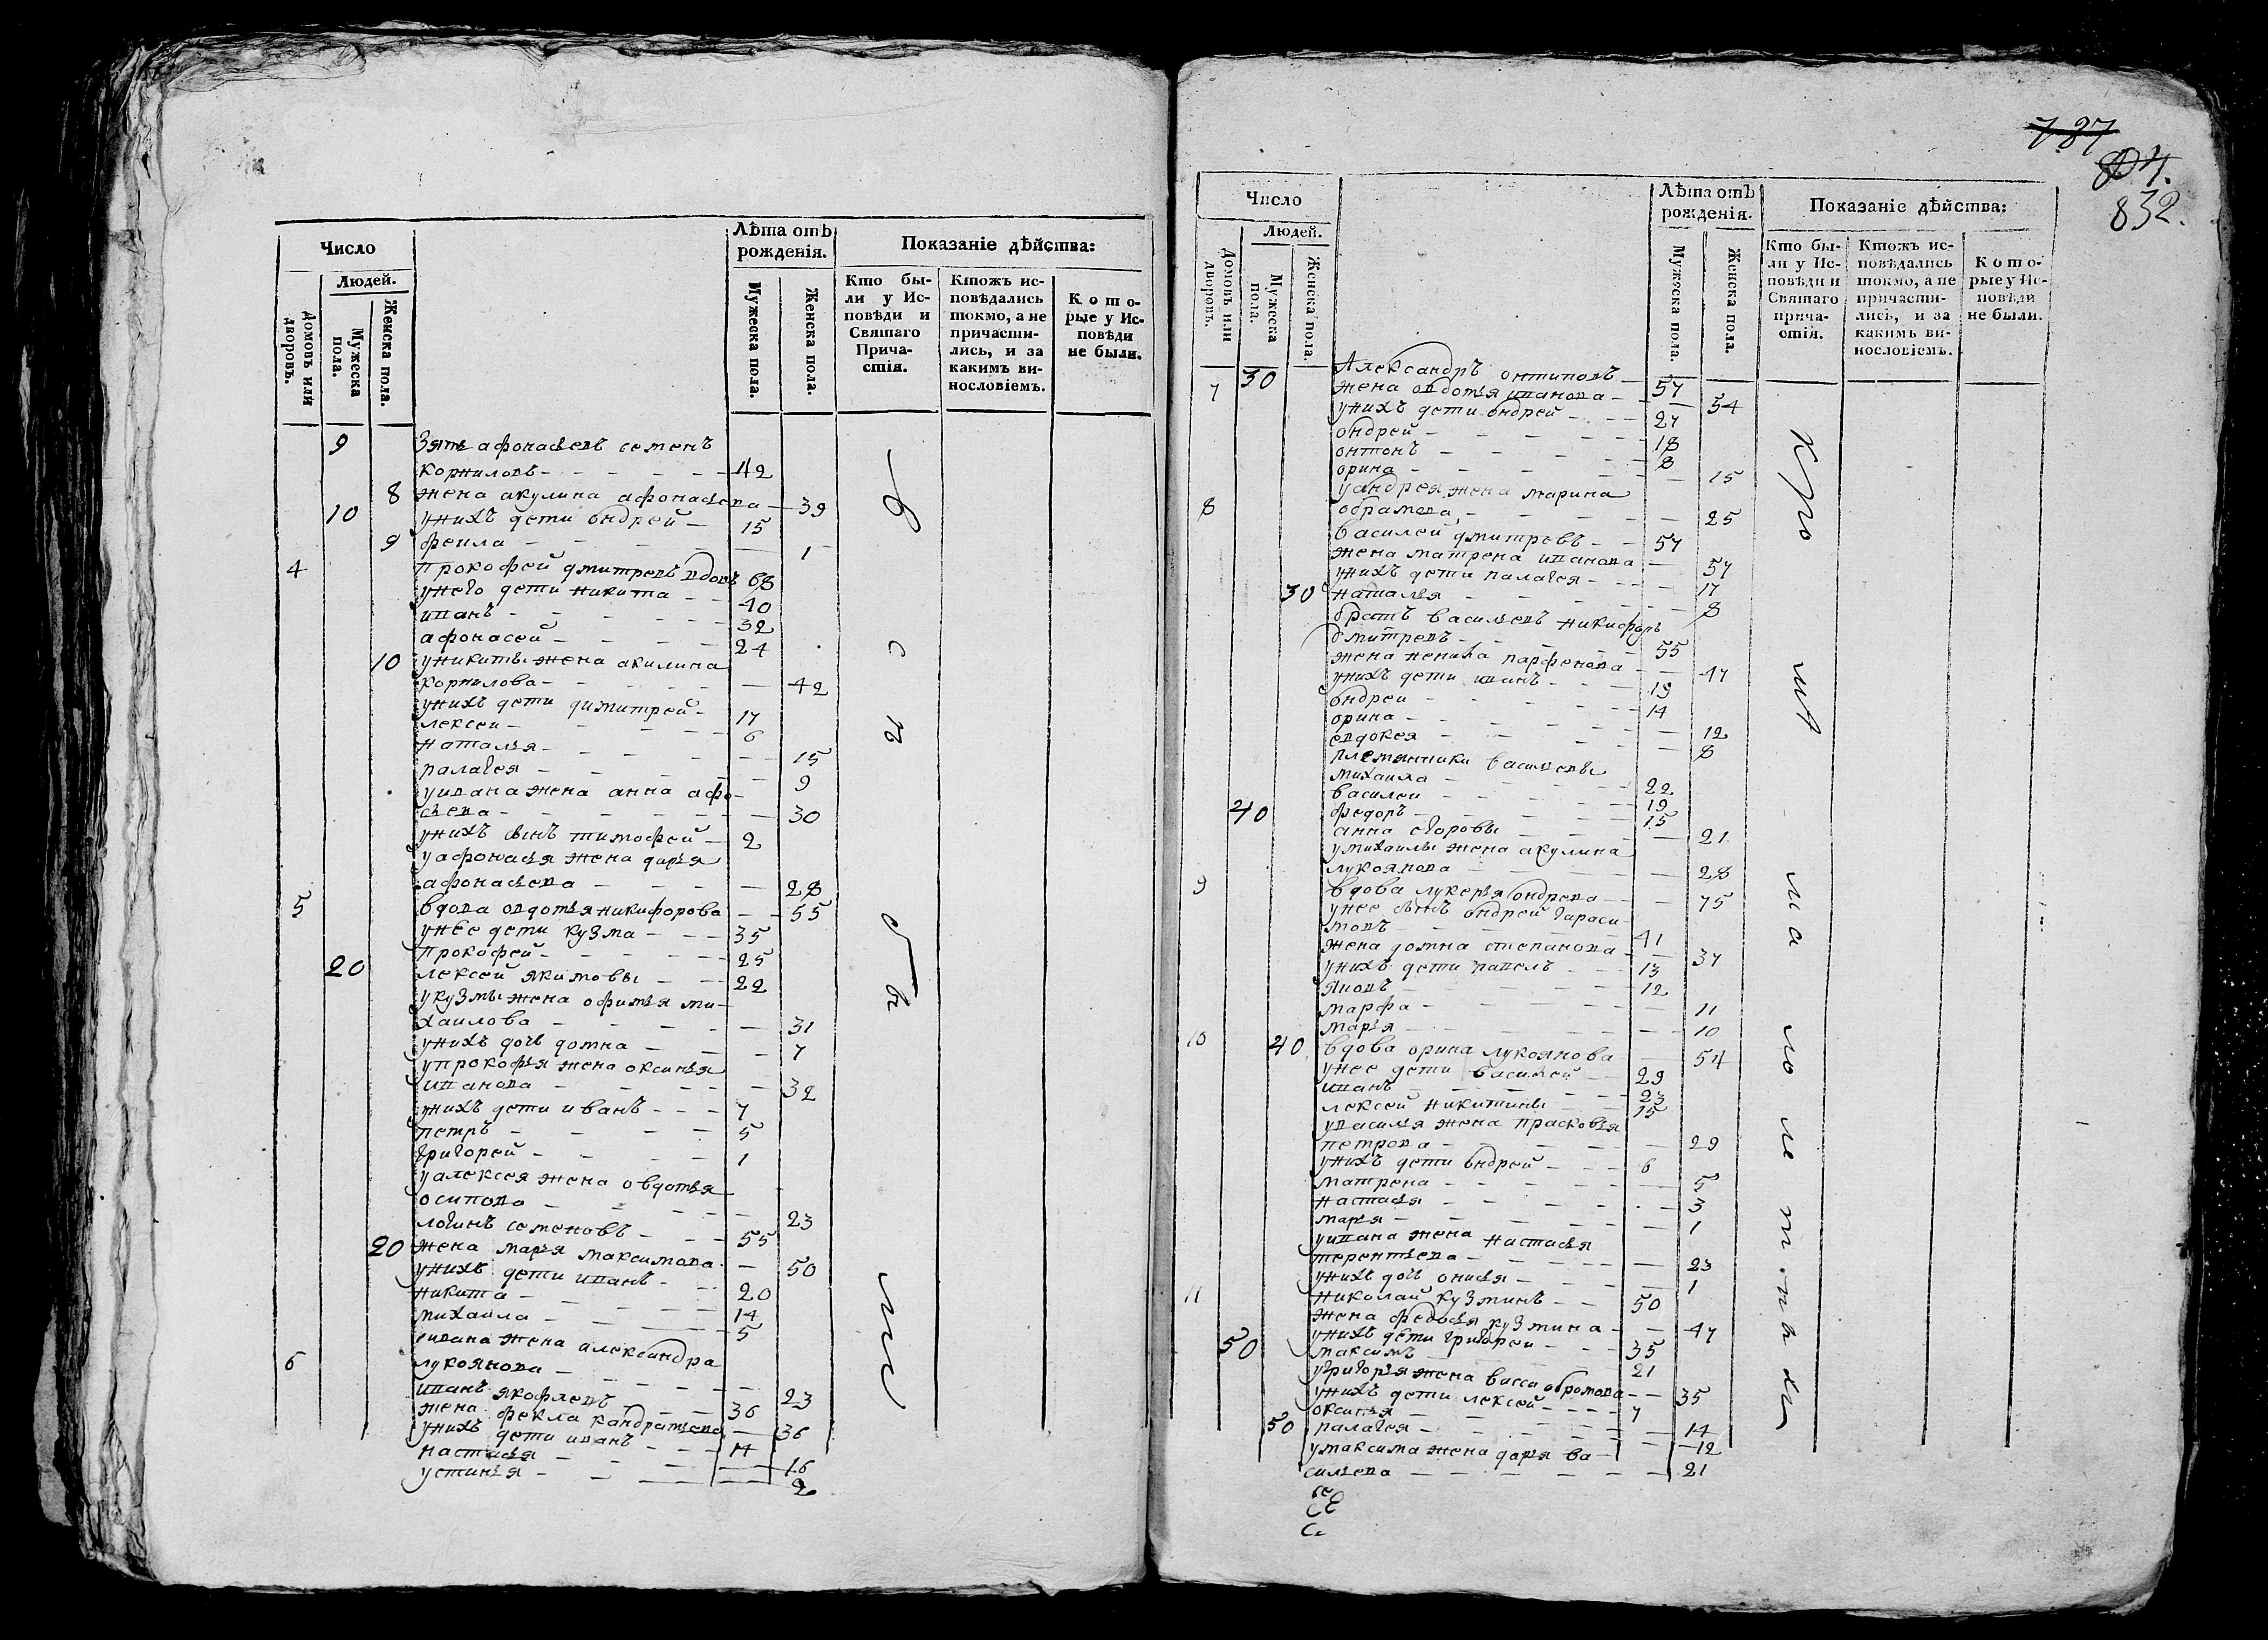 Число
Лѣта отъ рожденія.
Показаніе дѣйства:
Людей.
Домовъ или дворовъ.
Мужеска пола.
Женска пола.
Мужеска пола.
Женска пола.
Кто были у Исповѣди и Святаго Причастія.
Ктожъ исповѣдались токмо, а не причастились, и за какимъ винословіемъ.
Которые у Исповѣди не были.
9 Зять афонасьевъ семенъ
корниловъ 42
8 жена акулина афонасьева 39
10 унихъ дети ондрей 15
9 фекла 1
4 Прокофей дмитревъ вдовъ 68
унего дети никита 40
иванъ 32
афонасей 24
10 уникиты жена акилина
корнилова 42
унихъ дети димитрей 17
лексеи 6
наталья 15
палагея 9
уивана жена анна афо
сьева 30
унихъ сынъ тимофей 2
уафонасья жена дарья
афонасьева 28
5 вдова овдотья никифорова 55
унее дети кузма 35
Прокофей 25
20 лексей якимовы 22
укузмы жена офимья ми
хаилова 31
унихъ дочь домна 7
упрокофья жена оксинья
иванова 32
унихъ дети иванъ 7
петръ 5
григорей 1
уалексея жена овдотья
осипова 23
логинъ семеновъ 55
20 жена марья максимова 50
унихъ дети иванъ 20
никита 14
михаила 5
уивана жена александра
лукоянова 23
6 иванъ якофлевъ 36
жена фекла кандратьева 36
унихъ дети иванъ 14
настасья 16
устинья 2
в с п о в и
787
804.
832.
Число
Лѣта отъ рожденія.
Показаніе дѣйства:
Людей.
Домовъ или дворовъ.
Мужеска пола.
Женска пола.
Мужеска пола.
Женска пола.
Кто были у Исповѣди и Святаго причастія.
Ктожъ исповѣдались токмо, а не причастились, и за какимъ винословіемъ.
Которые у Исповѣди не были.
7 30 Александръ онтиповъ 57
жена овдотья иванова 54
унихъ дети ондрей 27
ондрей 18
онтонъ 8
орина 15
уандрея жена марина
обрамова 25
8 василей дмитревъ 57
жена матрена иванова 57
унихъ дети палагея 17
30 наталья 8
братъ васильевъ никифоръ
дмитревъ 55
жена ненила парфенова 47
унихъ дети иванъ 19
ондреи 14
орина 12
евдокея 8
племянники васильевы
михаила 22
василеи 19
40 федоръ 15
анна егоровы 21
умихаилы жена акулина
лукоянова 28
9 вдова лукерья ондрева 75
унее сынъ ондрей гараси
мовъ 41
жена домна степанова 37
унихъ дети павелъ 13
яковъ 12
марфа 11
марья 10
10 40 вдова орина лукоянова 54
унее дети василей 29
иванъ 23
лексей никитины 15
увасилья жена прасковья
петрова 29
унихъ дети ондрей 6
матрена 5
настасья 3
марья 1
уивана жена настасья
терентьева 23
унихъ дочь онисья 1
11 николай кузминъ 50
жена федосья кузмина 47
50 унихъ дети григореи 35
максимъ 21
угригорья жена васса обромова 35
унихъ дети лексей 7
оксинья 14
50 палагея 12
умаксима жена дарья ва
сильева 21